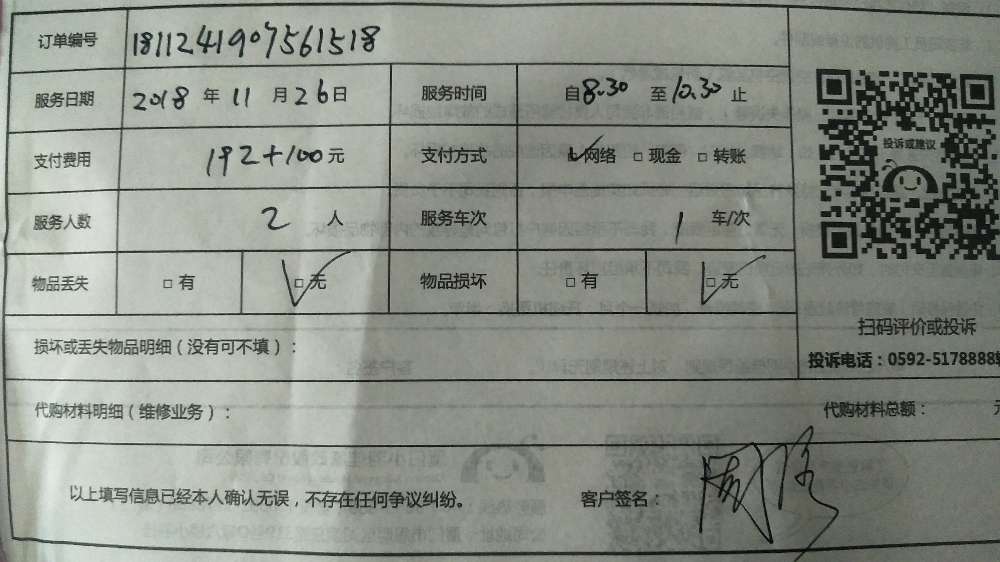 订单编号 1811241907561518
服务日期 2018 年 11 月 26 日 服务时间 自 8:30 至 10:30 止
支付费用 192+100 元 支付方式 ☑网络 □现金 □转账
投诉或建议
服务人数 2 人 服务车次 1 车/次
物品丢失 □有 ☑无 物品损坏 □有 ☑无
扫码评价或投诉
损坏或丢失物品明细（没有可不填）：
投诉电话：0592-5178888转
代购材料明细（维修业务）： 代购材料总额： 元
以上填写信息已经本人确认无误，不存在任何争议纠纷。 客户签名：